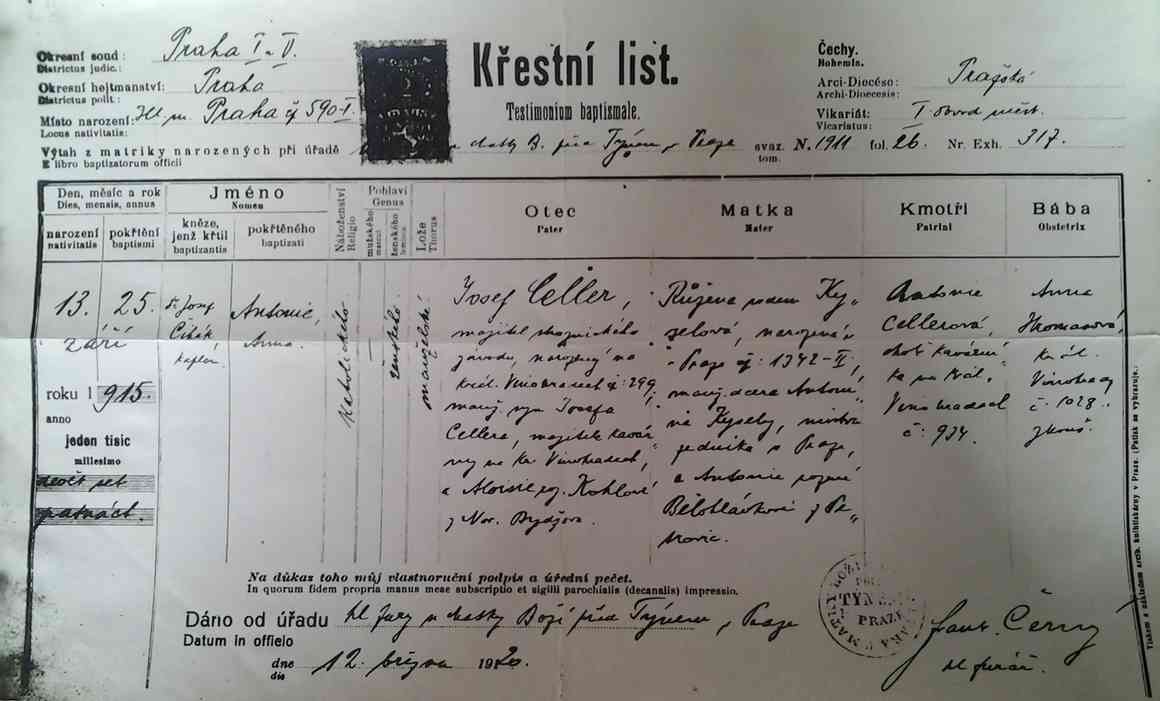 Okresní soud: Praha I–V.
Districtus judic.:
Okresní hejtmanství: Praha
Districtus polit.:
Místo narození: Hl. m. Praha čj 590-I.
Locus nativitatis:
Výtah z matriky narozených při úřadě matky B. před Týnem v Praze svaz. N. 1911 fol. 26. Nr. Exh. 317.
E libro baptizatorum officii tom.
Křestní list.
Testimonium baptismale.
Čechy.
Bohemia.
Arci-Diocéso: Pražská
Archi-Dioecesis:
Vikariát: I. obvod měst.
Vicariatus:
Den, měsíc a rok
Dies, mensis, annus
narození
nativitatis
pokřtění
baptismi
Jméno
Nomen
kněze,
jenž křtil
baptizantis
pokřtěného
baptizati
Náboženství
Religio
Pohlaví
Genus
mužského
mascul.
ženského
feminin.
Lože
Thorus
Otec
Pater
Matka
Mater
Kmotři
Patrini
Bába
Obstetrix
13. 25.
září
roku 1915.
anno
jeden tisíc
millesimo
devět set
patnáct.
P. Josef
Cibák,
kaplan
Antonie,
Anna.
Katolického
ženského
manželské
Josef Celler,
majitel
závodu, narozený na
král. Vinohradech čj: 299,
manž. syn Josefa
Cellera, majitele kavár„
ny na Kr. Vinohradech,
a Aloisie roz. Kohlové
z Nov. Bydžova.
Růžena rodem Ky„
selová, narozená
v Praze čj: 1342–II,
manž. dcera Antoní„
na Kyselý,
v Praze,
a Antonie rozené
Bělohlávkové z Pe„
trovic.
Antonie
Cellerová,
choť kavární
ka na Král.
Vinohradech
č: 934.
Anna
Thomasová,
Král.
Vinohrady
č. 1028.
zkouš.
Na důkaz toho můj vlastnoruční podpis a úřední pečet.
In quorum fidem propria manus meae subscriptio et sigilli parochialis (decanalis) impressio.
Dáno od úřadu hl. fary u Matky Boží před Týnem v Praze
Datum in officio
dne 12. března 1920.
die
TÝNEM
PRAZE
Frant. Černý
hl. farář.